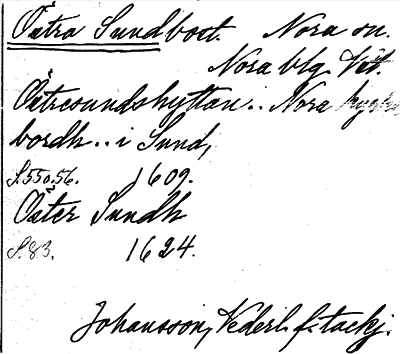 Östra Sundbort. Nora sn.
Nora blg. Vstl.
Östresundshyttan.. Nora
bordh.. i Sund,
S. 55o.56. 1609.
Öster Sundh
S. 83. 1624.
Johansson, Nederl. f. tackj.